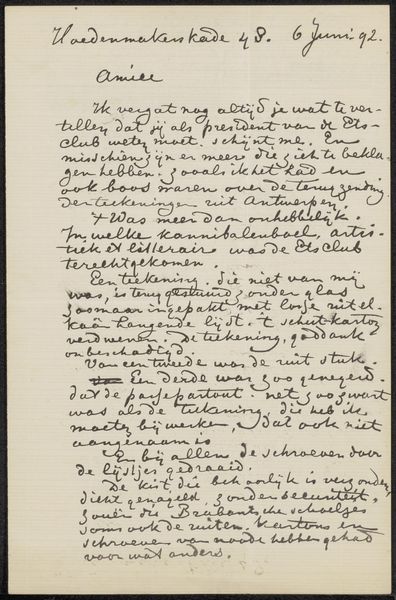 Hoedenmakerskade 48. 6 Juni. 92.
Amice
Ik vergat nog altijd je wat te ver-
tellen dat jij als president van de Ets-
club weten moet. schijnt me. En
misschien zijn er meere die zich te bekla-
gen hebben. zooals ik het had en
ook boos waren over de terugzending
der teekeningen uit Antwerpen.
+ Was meer dan onhebbelijk.
In welke kannibalenboel, artis-
tiek et litterair was de Etsclub
terechtgekomen.
Een teekening. die niet van mij
was, is teruggestuurd zonder glas
zoomaar ingepakt met losse uit el-
kaâr hangende lijst. 't schutkarton
verdwenen. De teekening, goddank
onbeschadigd.
Van een tweede was de ruit stuk
Een derde was zoo genegerd.
dat de passepartout net zoo zwart
was als de tekening, die heb ik
moeten bijwerken, dat ook niet
aangenaam is
En bij allen de schroeven door
de lijstjes gedraaid.
De kist die behoorlijk is verzonden,
dicht genageld, zonder
die Brabantsche schoeljes
soms ook de ruiten. Kartons en
schroeven van noode hebben gehad
voor wat anders.